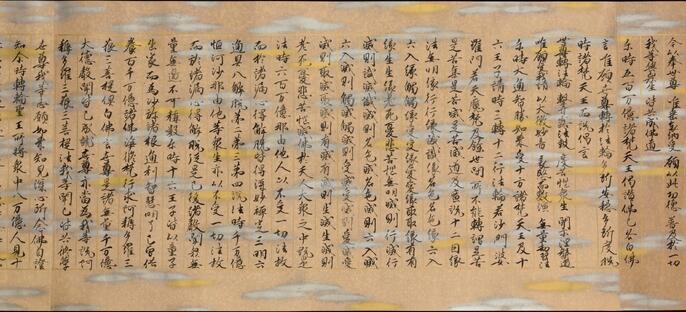 今以奉世尊 唯垂哀納受 願以此功德 普及於一切
我等與衆生 皆共成佛道
尒時五百万億諸梵天王偈讚佛已各白佛
言唯願世尊轉於法輪多所安穩多所度脫
時諸梵天王而說偈言
世尊轉法輪 擊甘露法鼓 度苦惱衆生 開示涅槃道
唯願受我請 以大微妙音 哀愍而敷演 無量劫習法
尒時大通智勝如來受十方諸梵天王及十
六王子請即時三轉十二行法輪若沙門婆
羅門若天魔梵及餘世間所不能轉謂是苦
是苦集是苦滅是苦滅道及廣說十二因緣
法無明緣行行緣識識緣名色名色緣六入
六入緣觸觸緣受受緣愛愛緣取取緣有有
緣生生緣老死憂悲苦惱無明滅則行滅行
滅則識滅識滅則名色滅名色滅則六入滅
六入滅則觸滅觸滅則受滅受滅則愛滅愛
滅則取滅取滅則有滅有滅則生滅生滅則
老死憂悲苦惱滅佛於天人大衆之中說是
法時六百万億那由他人以不受一切法故
而於諸漏心得解脫皆得深妙禪定三明六
通具八解脫第二第三第四說法時千万億
恒河沙那由他等衆生亦以不受一切法故
而於諸漏心得解脫從是已後諸聲聞衆無
量無邊不可稱數尒時十六王子皆以童子
出家而為沙彌諸根通利智慧明了已曾供
養百千万億諸佛淨修梵行求阿耨多羅三
藐三菩提俱白佛言世尊是諸無量千万億
大德聲聞皆已成就世尊亦當為我等說阿
耨多羅三藐三菩提法我等聞已皆共修學
世尊我等志願如來知見深心所念佛自證
知尒時轉輪聖王所將衆中八万億人見十